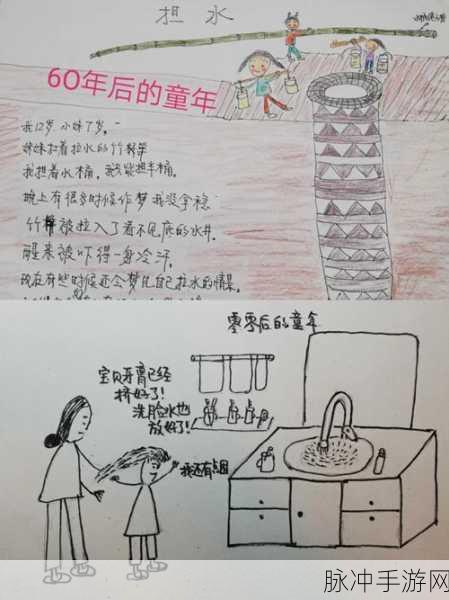 担水
60年后的童年
我12岁，小妹7岁。
妹妹扛着拉水的竹
我担着水桶，我只能担半桶。
晚上有很多时候作梦我没拿稳
竹竿被拉入了看不见底的水井。
醒来被吓得一身冷汗，
现在有些时候还会梦见自己拉水的情景。
零零后的童年
宝贝牙膏已经
挤好了！
洗脸水也
放好了！
我还有点困
脉冲手游网